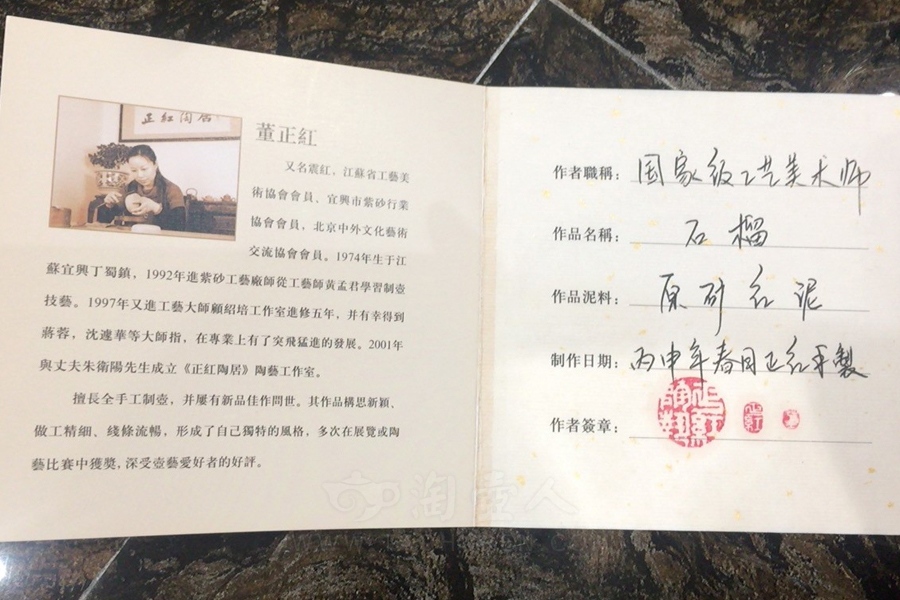 正紅陶居
董正紅
又名震紅，江蘇省工藝美
術協會會員、宜興市紫砂行業
協會會員，北京中外文化藝術
交流協會會員。1974年生于江
蘇宜興丁蜀鎮，1992年進紫砂工藝廠師從工藝師黃孟君學習制壺
技藝。1997年又進工藝大師顧紹培工作室進修五年，并有幸得到
蔣蓉，沈遽華等大師指，在專業上有了突飛猛進的發展。2001年
與丈夫朱衛陽先生成立《正紅陶居》陶藝工作室。
擅長全手工制壺，并屢有新品佳作問世。其作品構思新穎、
做工精細、綫條流暢，形成了自己獨特的風格，多次在展覽或陶
藝比賽中獲獎，深受壺藝愛好者的好評。
作者職稱：国家级工艺美术师
作品名稱：石榴
作品泥料：原矿红泥
制作日期：丙申年春月正红手製
作者簽章：
正紅
淘壺人